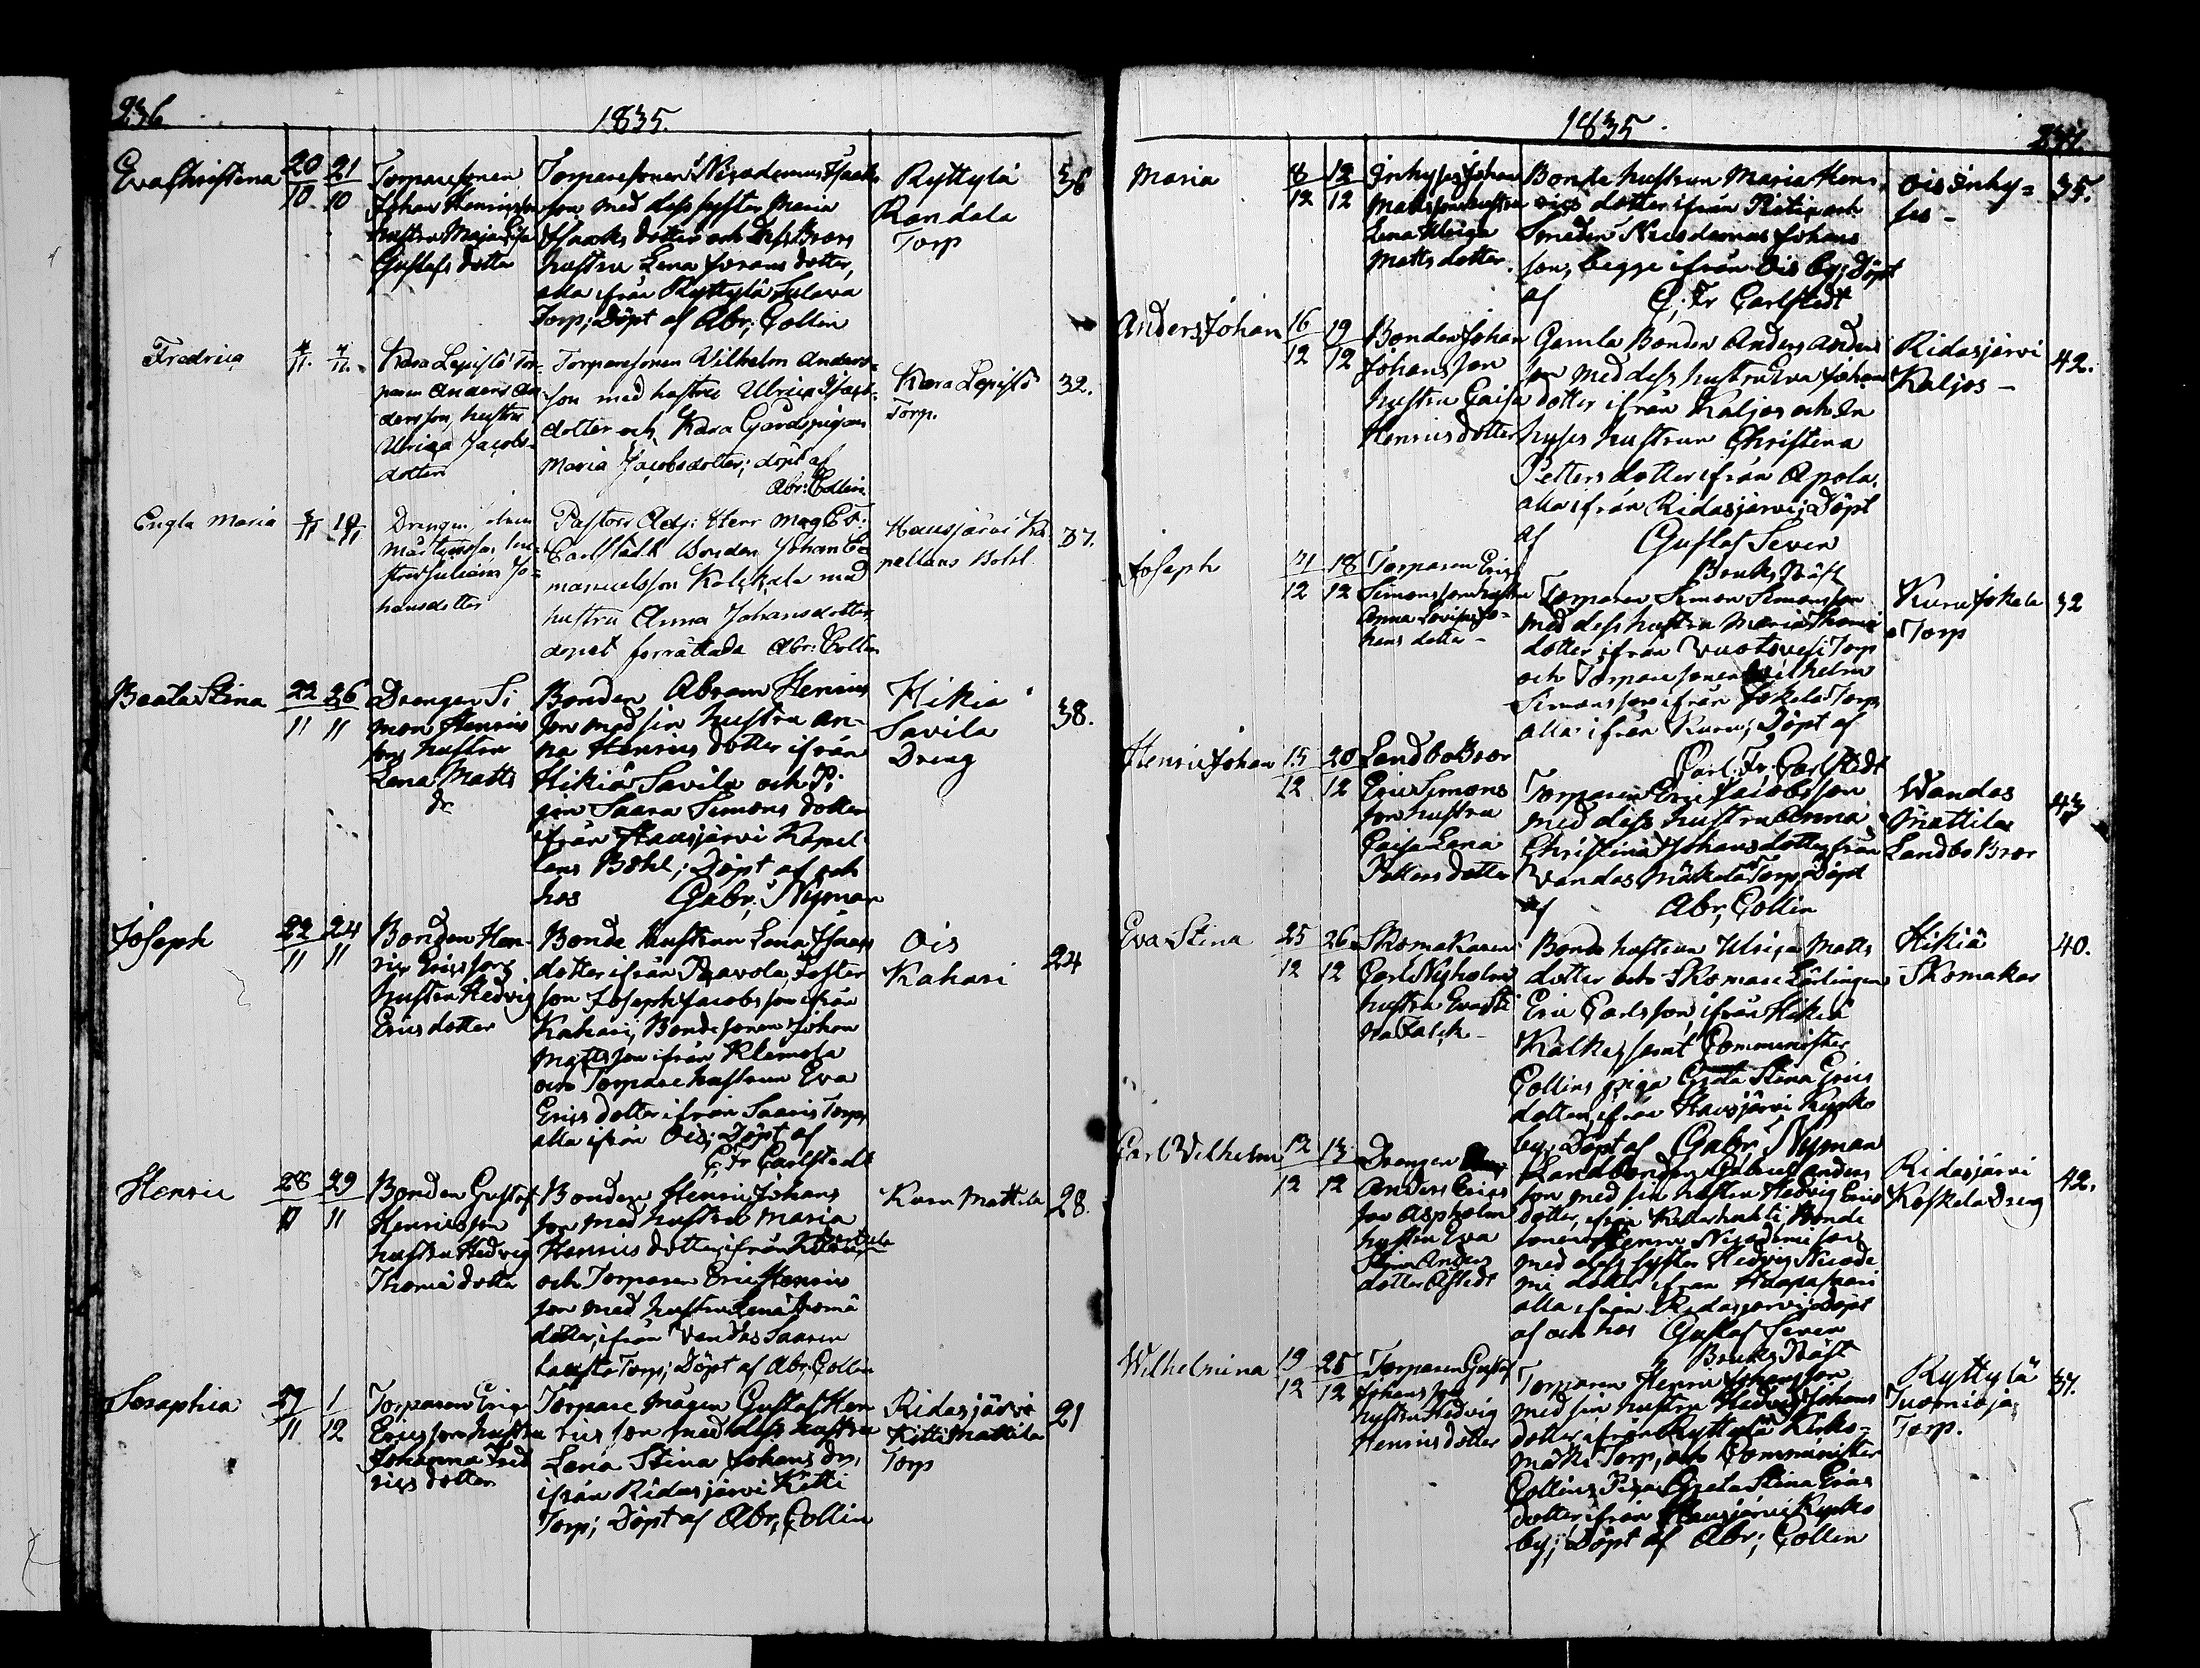 236.
1835.
Eva Christina 20/10 21/10
Torparesonen
Johan Henricsson
hustru Maja Lisa
Gustafs dotter
Torparesonen Nicodemus Isaacs
son med dess syster Maria
Isaacs dotter och dess Brors
hustru Lena Jörans dotter,
alla ifrån Ryttylä
Torp; Döpt af Abr; Collin
Ryttylä
Randala
Torp
36
Fredrica
Kara Lepistö Tor-
paren Anders An
dersson, hustru
Ulrica Jacobs-
dotter
Torparesonen Vilhelm Anders-
son med hustru Ulrica Isacs-
dotter och Kara Gårdspigan
Maria Jacobsdotter; döpt af
Abr: Collin
Kara Lepistö
Torp.
32.
Engla Maria
Drengen
Mårtensson hu-
stru Juliana Jo-
hansdotter
Pastors Adj: Herr Mag C F:
Carlstedt Bonden Johan E
manuelsson Kolkkala med
hustru Anna Johansdotter,
dopet förrättade Abr: Collin
Hausjärvi Ka
pellans Bohl
37.
Beata Stina 22/11 26/11
Drengen Si
mon Henrics
son hustru
Lena Matts
dr
Bonden Abram Henrics
son med sin hustru An-
na Henrics dotter ifrån
Hikiä Savila och Pi
gan Saara Simons dotter
ifrån Hausjärvi Kapel
lans Bohl; Döpt af och
hos Gabr; Nyman
Hikiä
Savila
Dreng
38.
Joseph 22/11 24/11
Bonden Hen-
ric Ericsson
hustru Hedvig
Erics dotter
Bonde hustrun Lena Isaacs
dotter ifrån Paavola, Foster
son Joseph Jacobsson ifrån
Kahari, Bondesonen Johan
Mattsson ifrån Klemola
och Torpare hustrun Eva
Erics dotter ifrån Saaris Torp,
alla ifrån Ois; Döpt af
C; Fr Carlstedt
Ois
Kahari
24
Henric 28/11 29/11
Bonden Gustaf
Henricsson
hustru Hedvig
Thomæ dotter
Bonden Henric Johans
son med hustru Maria
Henrics dotter, ifrån
och Torparen Eric Henrics
son med hustru Lena Thomæ
dotter, ifrån Vandas Saaren
Torp; Döpt af Abr; Collin
Kuru Mattila
28.
Seraphia 29/11 1/12
Torparen Eric
Ericsson hustru
Johanna Fred
rics dotter
Torpare mågen Gustaf Hen
rics son med dess hustru
Lena Stina Johans dr,
ifrån Ridasjärvi Kitti
Torp; Döpt af Abr; Collin
Ridasjärvi
Kitti Mattila
Torp
21
1835.
237.
Maria 8/12 12/12
Inhyses Johan
Mattsson hustru
Lena Ulrica
Matts dotter
Bonde hustrun Maria Hen-
rics dotter ifrån och
Smeden Nicodemus Johans
son, begge ifrån Ois by; Döpt
af C; Fr Carlstedt
Ois Inhy=
ses -
35.
Anders Johan 16/12 19/12
Bonden Johan
Johansson
hustru Caisa
Henrics dotter
Gamla Bonden Anders Anders
son med dess hustru Eva Johans
dotter ifrån Kaljos och In
hyses hustrun Christina
Petters dotter ifrån Apola,
alla ifrån Ridasjärvi; Döpt
af Gustaf Seven
Bruks Präst
Ridasjärvi
Kaljos -
42.
Joseph 18/12
Torparen Eric
Simonsson hustru
Anna Lovisa Jo-
hans dotter -
Torparen Simon Simonsson
med dess hustru Maria Thomæ
dotter ifrån Torp
och Torparesonen Wilhelm
Simonsson ifrån Jokela Torp
alla ifrån Kuru; Döpt af
Carl Fr; Carlstedt
Kuru Jokela
Torp
32
Henric Johan 15/12 20/12
Landbo Bror
Eric Simons
son hustru
Caisa Lena
Petters dotter
Torparen Eric Jacobsson
med dess hustru Anna
Christina Johans dotter från
Vandas Mäkelä Torp; Döpt
af Abr; Collin
Wandas
Mattila
Landbo Bror
43
Eva Stina 25/12 26/12
Skomakaren
Carl Nyholm
hustru Eva Sti
na Falck -
Bonde hustrun Ulrica Matts
dotter och Skomare Lärlingen
Eric Carlsson, ifrån Hikiä
Kalkes, samt Comminister
Collins piga Greta Stina Erics
dotter, ifrån Hausjärvi Kyrko
by; Döpt af Gabr; Nyman
Hikiä
Skomakar
40.
Carl Vilhelm 12/12 13/12
Drengen
Anders Erics
son Aspholm
hustru Eva
Stina Anders
dotter Åstedt
Landbonden Gabriel Anders
son med sin hustru Hedvig Erics
dotter, ifrån Bonde
sonen Henric Nicodemi son
med dess syster Hedvig Nicode
mi dotter ifrån Haapasaari
alla ifrån Ridasjärvi; Döpt
af och hos Gustaf Seven
Bruks Präst
Ridasjärvi
Koskela Dreng
42.
Wilhelmina 19/12 25/12
Torparen Gustaf
Johansson
hustru Hedvig
Henrics dotter
Torparen Henric Johansson
med sin hustru Hedvig Johans
dotter ifrån Ryttylä Kirko-
mäki Torp, och Comminister
Collins Piga Greta Stina Erics
dotter ifrån Hausjärvi Kyrko
by; Döpt af Abr; Collin
Ryttylä
Tuomioja
Torp.
37.